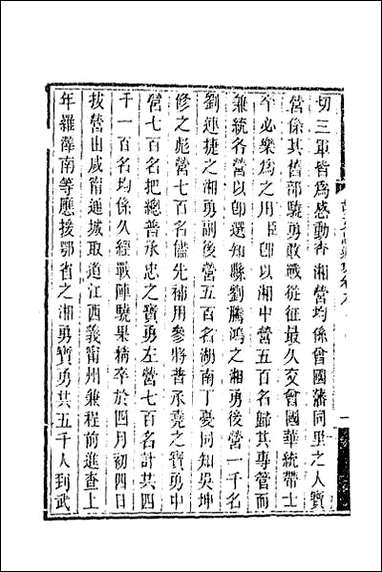 切三軍皆爲感動查湘營均係曾國藩同里之人寶
營係其舊部驍勇敢戰從征最久交曾國華統帶士
卒必樂爲之用臣卽以湘中營五百名歸其專管而
兼統各營以卽選知縣劉騰鴻之湘勇後營一千名
劉連捷之湘勇副後營五百名湖南丁憂同知吳坤
修之彪營七百名儘先補用參將普承堯之寶勇中
營七百名把總普承忠之寶勇左營七百名計共四
千一百名均係久經戰陣驍果精卒於四月初四日
拔營由咸甯通城取道江西義甯州兼程前進查上
年羅澤南等應接鄂省之湘勇寶勇共五千人到武